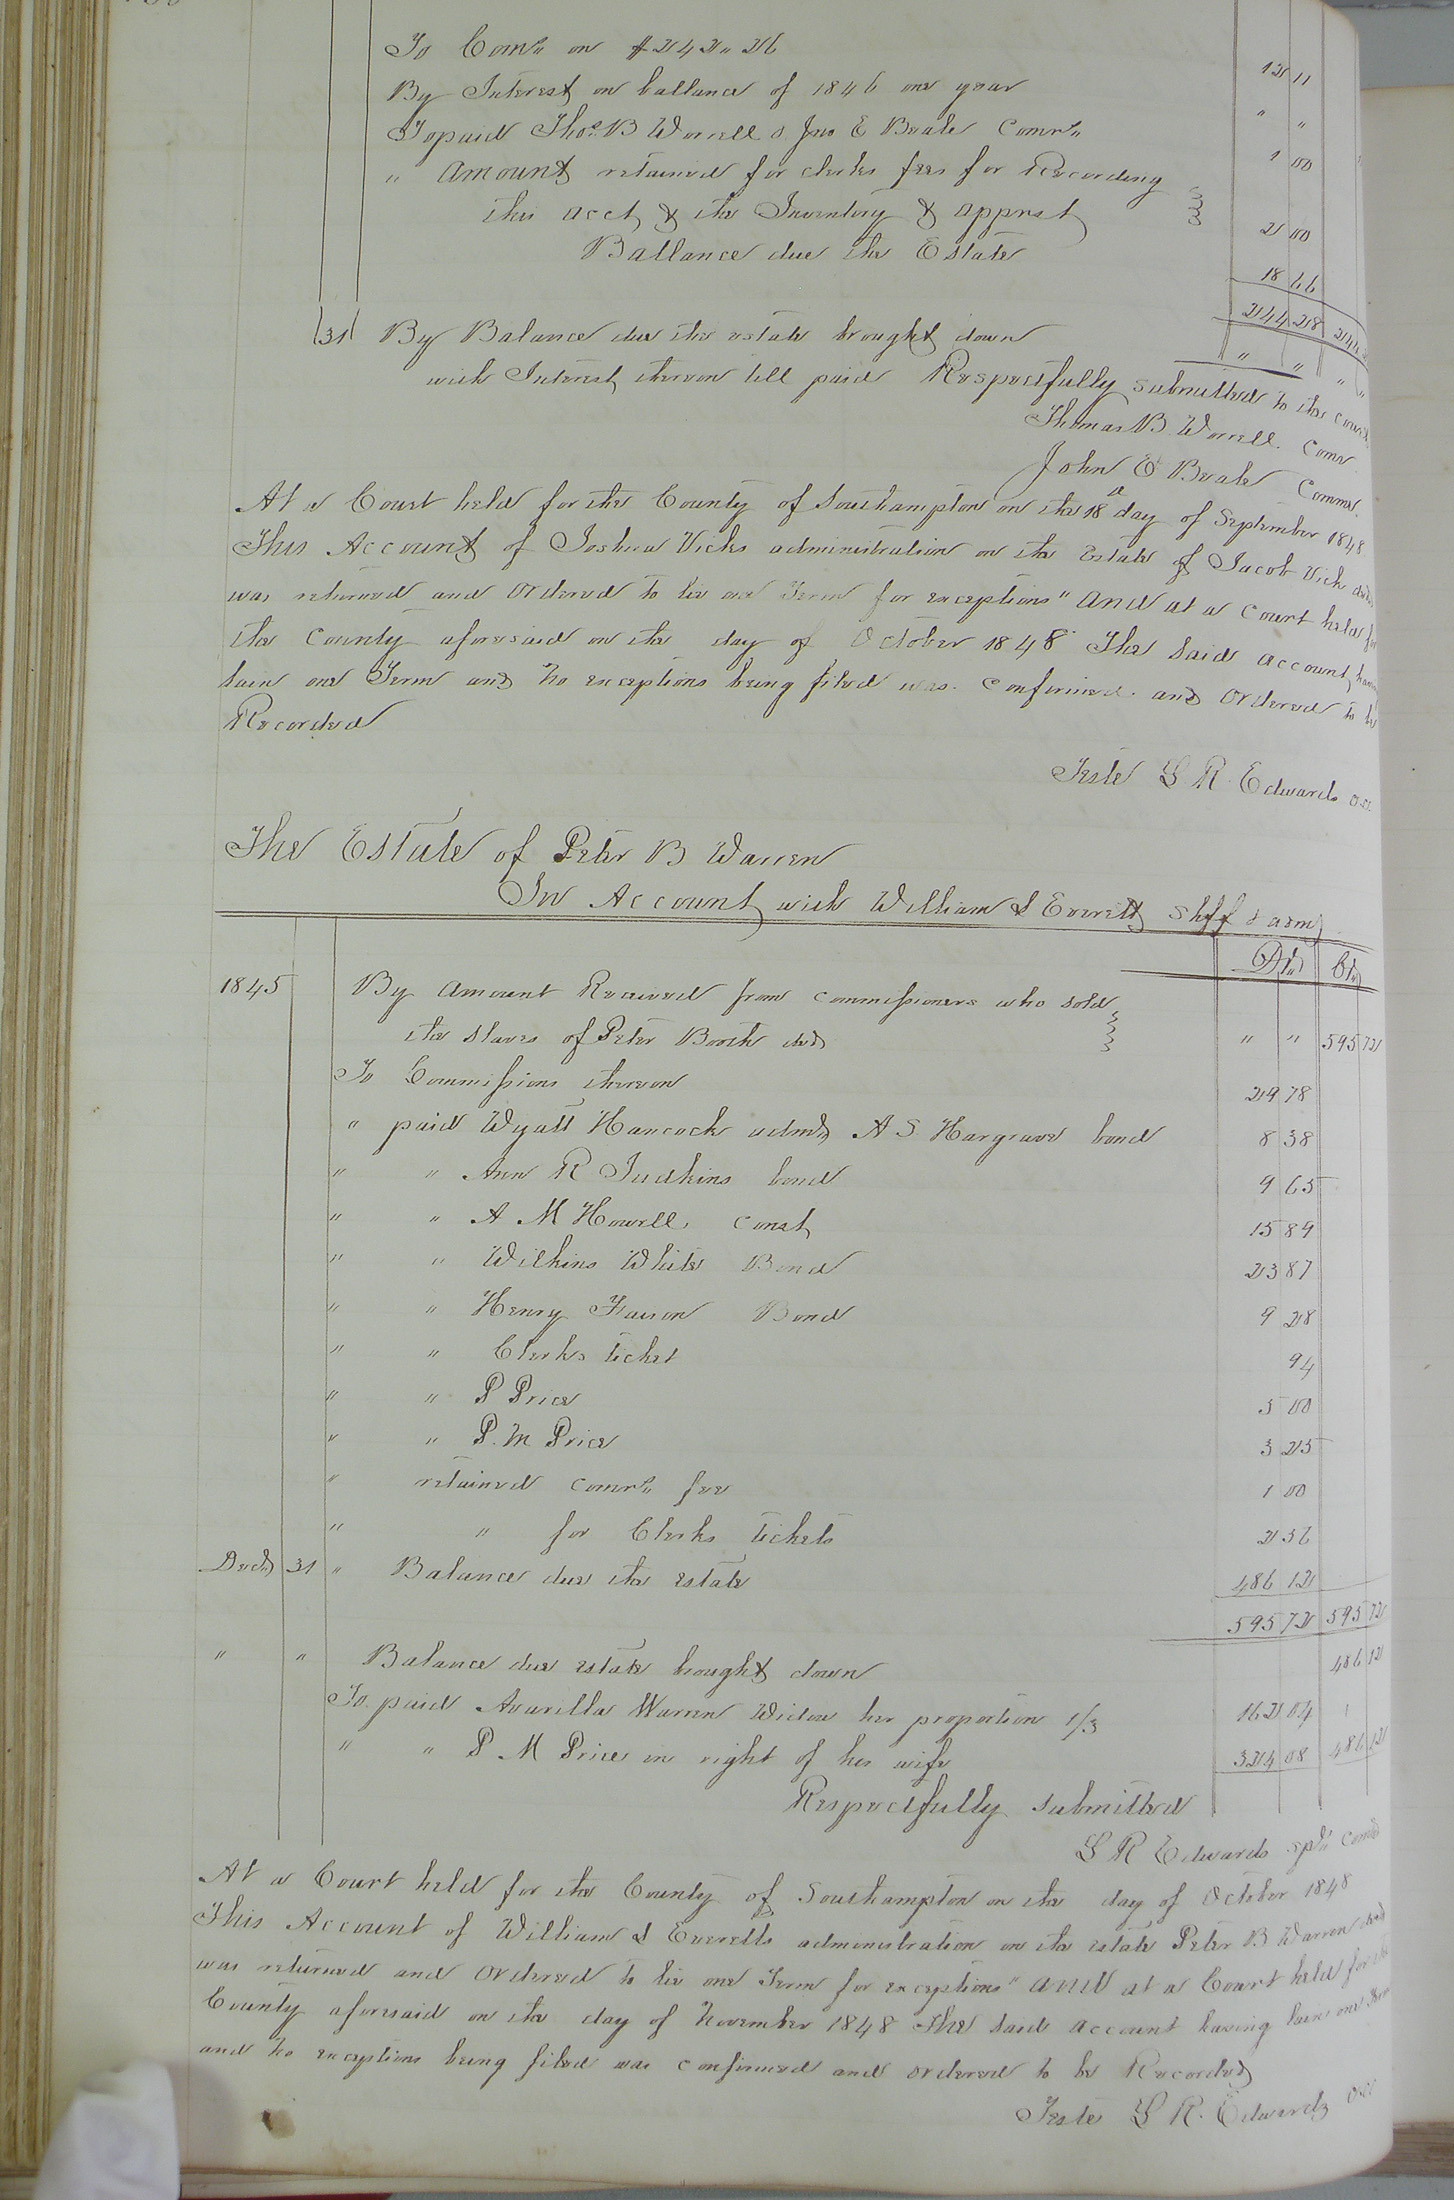 To Comn on $242.26 12 11
By Interest on ballance of 1846 one year " "
To paid Thos. B Worrell & Jno E Beale Comrs 1 00
" Amount retained for clerks fees for Recording
this acct & the Inventory & apprst 2 00
Ballance due the Estate 18 66
244 28 244
31 By Balance due the estate brought down " " " "
with Interest thereon till paid Respectfully submitted to the court
Thomas B. Worrell. Comr
John E Beale Commr.
At a Court held for the County of Southampton on the 18th day of September 1848
This Account of Joshua Vicks administration on the Estate of Jacob Vick decd
was returned and Ordered to lie one Term for exceptions" And at a Court held for
the County aforesaid on the day of October 1848 The Said account having
lain one Term and no exceptions being filed was confirmed and Ordered to be
Recorded
Teste L R Edwards
The Estate of Peter B Warren
In Account with William S Everett Shff & adm
Dr Cr
1845 By Amount Received from commissioners who sold
the slaves of Peter Booth decd " " 595 72
To Commissions thereon 29 78
" paid Wyatt Hancock admr A S. Hargrave bond 8 38
" " Ann R Judkins bond 9 65
" " A M Howell, const 15 89
" " Wilkins White Bond 23 87
" " Henry Faison Bond 9 28
" " Clerks ticket 94
" " P Price 5 00
" " P. M Price 3 25
" retained comrs fee 1 00
" " for Clerks tickets 2 56
Decr 31 " Balance due the estate 486 12
595 72 595 72
" " Balance due estate brought down 486 12
To paid Avarilla Warren Widow her proportion 1/3 162 04
" " P M Price in right of his wife 324 08 486 12
Respectfully submitted
L R Edwards spl Comr
At a Court held for the County of Southampton on the day of October 1848
This Account of William S Everetts administration on the estate Peter B Warren decd
was returned and Ordered to lie one Term for exceptions" And at a Court held for the
County aforesaid on the day of November 1848 The Said account having lain one Term
and no exceptions being filed was confirmed and ordered to be Recorded
Teste L R. Edwards